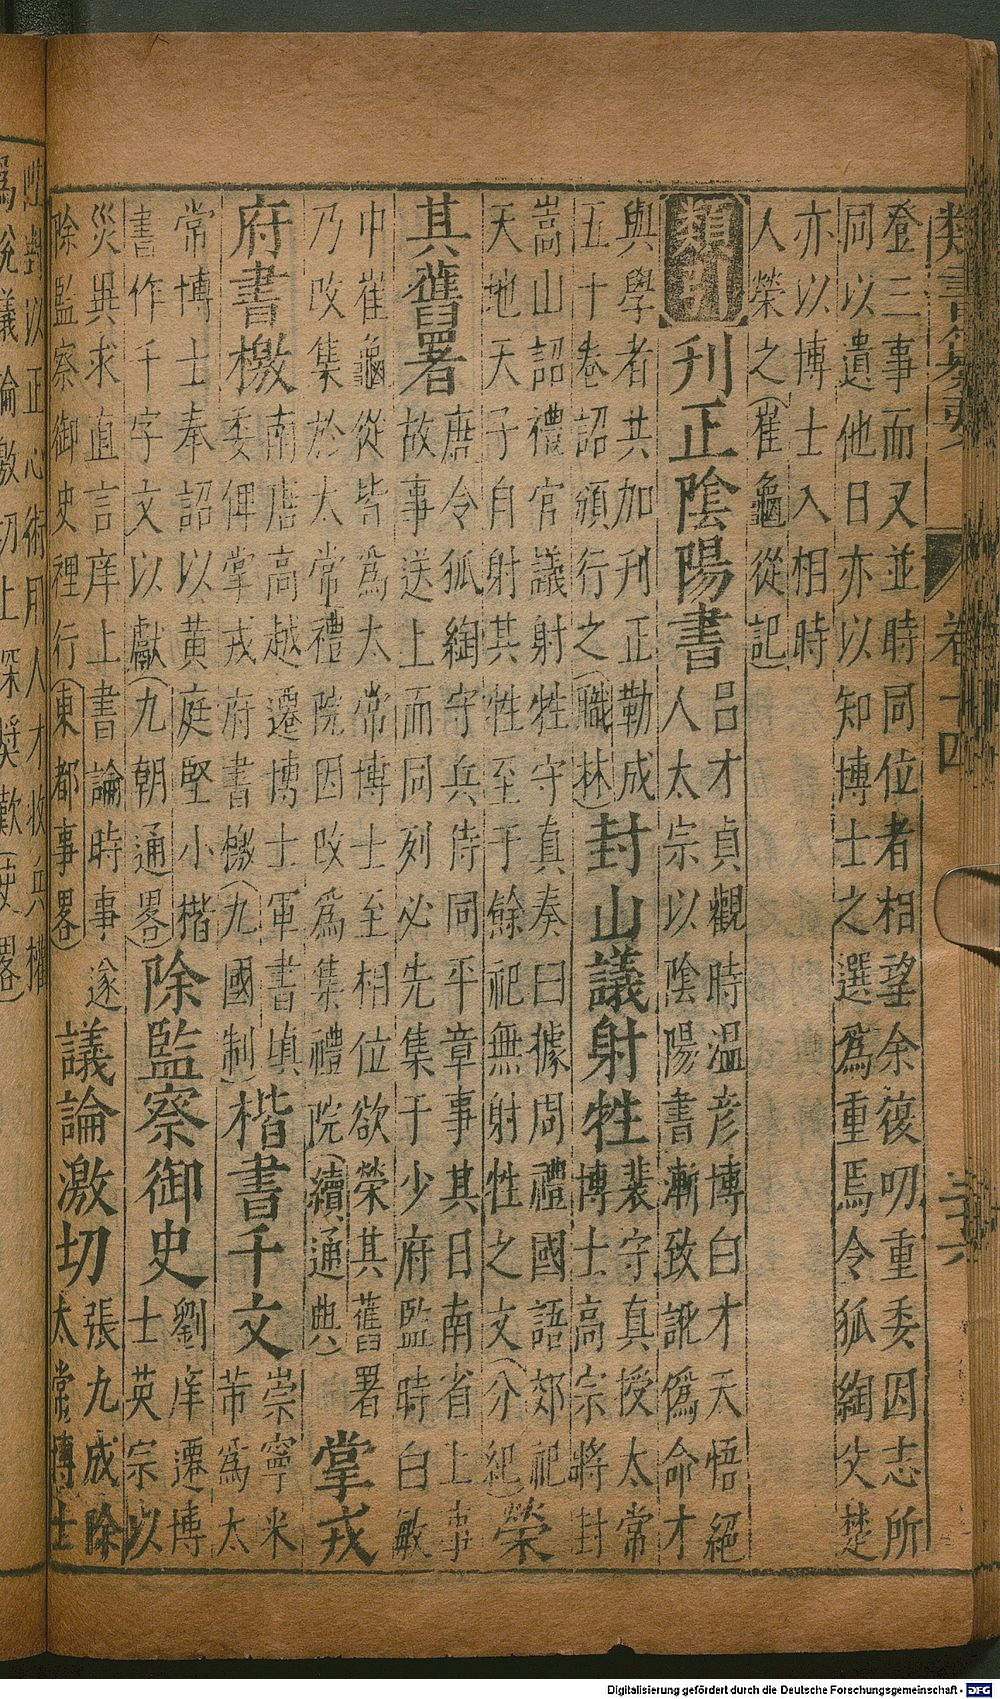 卷十四
登三事而又並時同位者相望余筱叨重委因志所
同以遺他日亦以知博士之選爲重焉令狐綯父楚
亦以博士入相時
人榮之(崔龜從記)
類引
刊正陰陽書
呂才貞觀時温彦博白才天悟絕
人太宗以陰陽書漸致訛偽命才
與學者共加刊正勒成
五十巻詔頒行之(職林)
封山議射牲
裴守真授太常
博士高宗將封
嵩山詔禮官議射牲守真奏曰據周禮國語郊祀
天地天子自射其牲至于餘祀無射牲之文(分紀)
榮
其舊署
唐令狐綯守兵侍同平章事其日南省上事
故事送上而同列必先集于少府監時白敏
中崔龜從皆爲太常博士至相位欲榮其舊署
乃改集於太常禮院因改爲集禮院(續通典)
掌戎
府書檄
南唐高越遷博士軍書填
委俾掌戎府書檄(九國制)
楷書千文
崇寧米
芾爲太
常博士奉詔以黃庭堅小楷
書作千字文以獻(九朝通畧)
除監察御史
劉庠遷博
士英宗以
災異求直言庠上書論時事遂
除監察御史裡行(東都事畧)
議論激切
張九成除
太常博士
對以正心術用人才收兵權
爲說議論激切上深奬歎
Digitalisierung gefördert durch die Deutsche Forschungsgemeinschaft - DFG